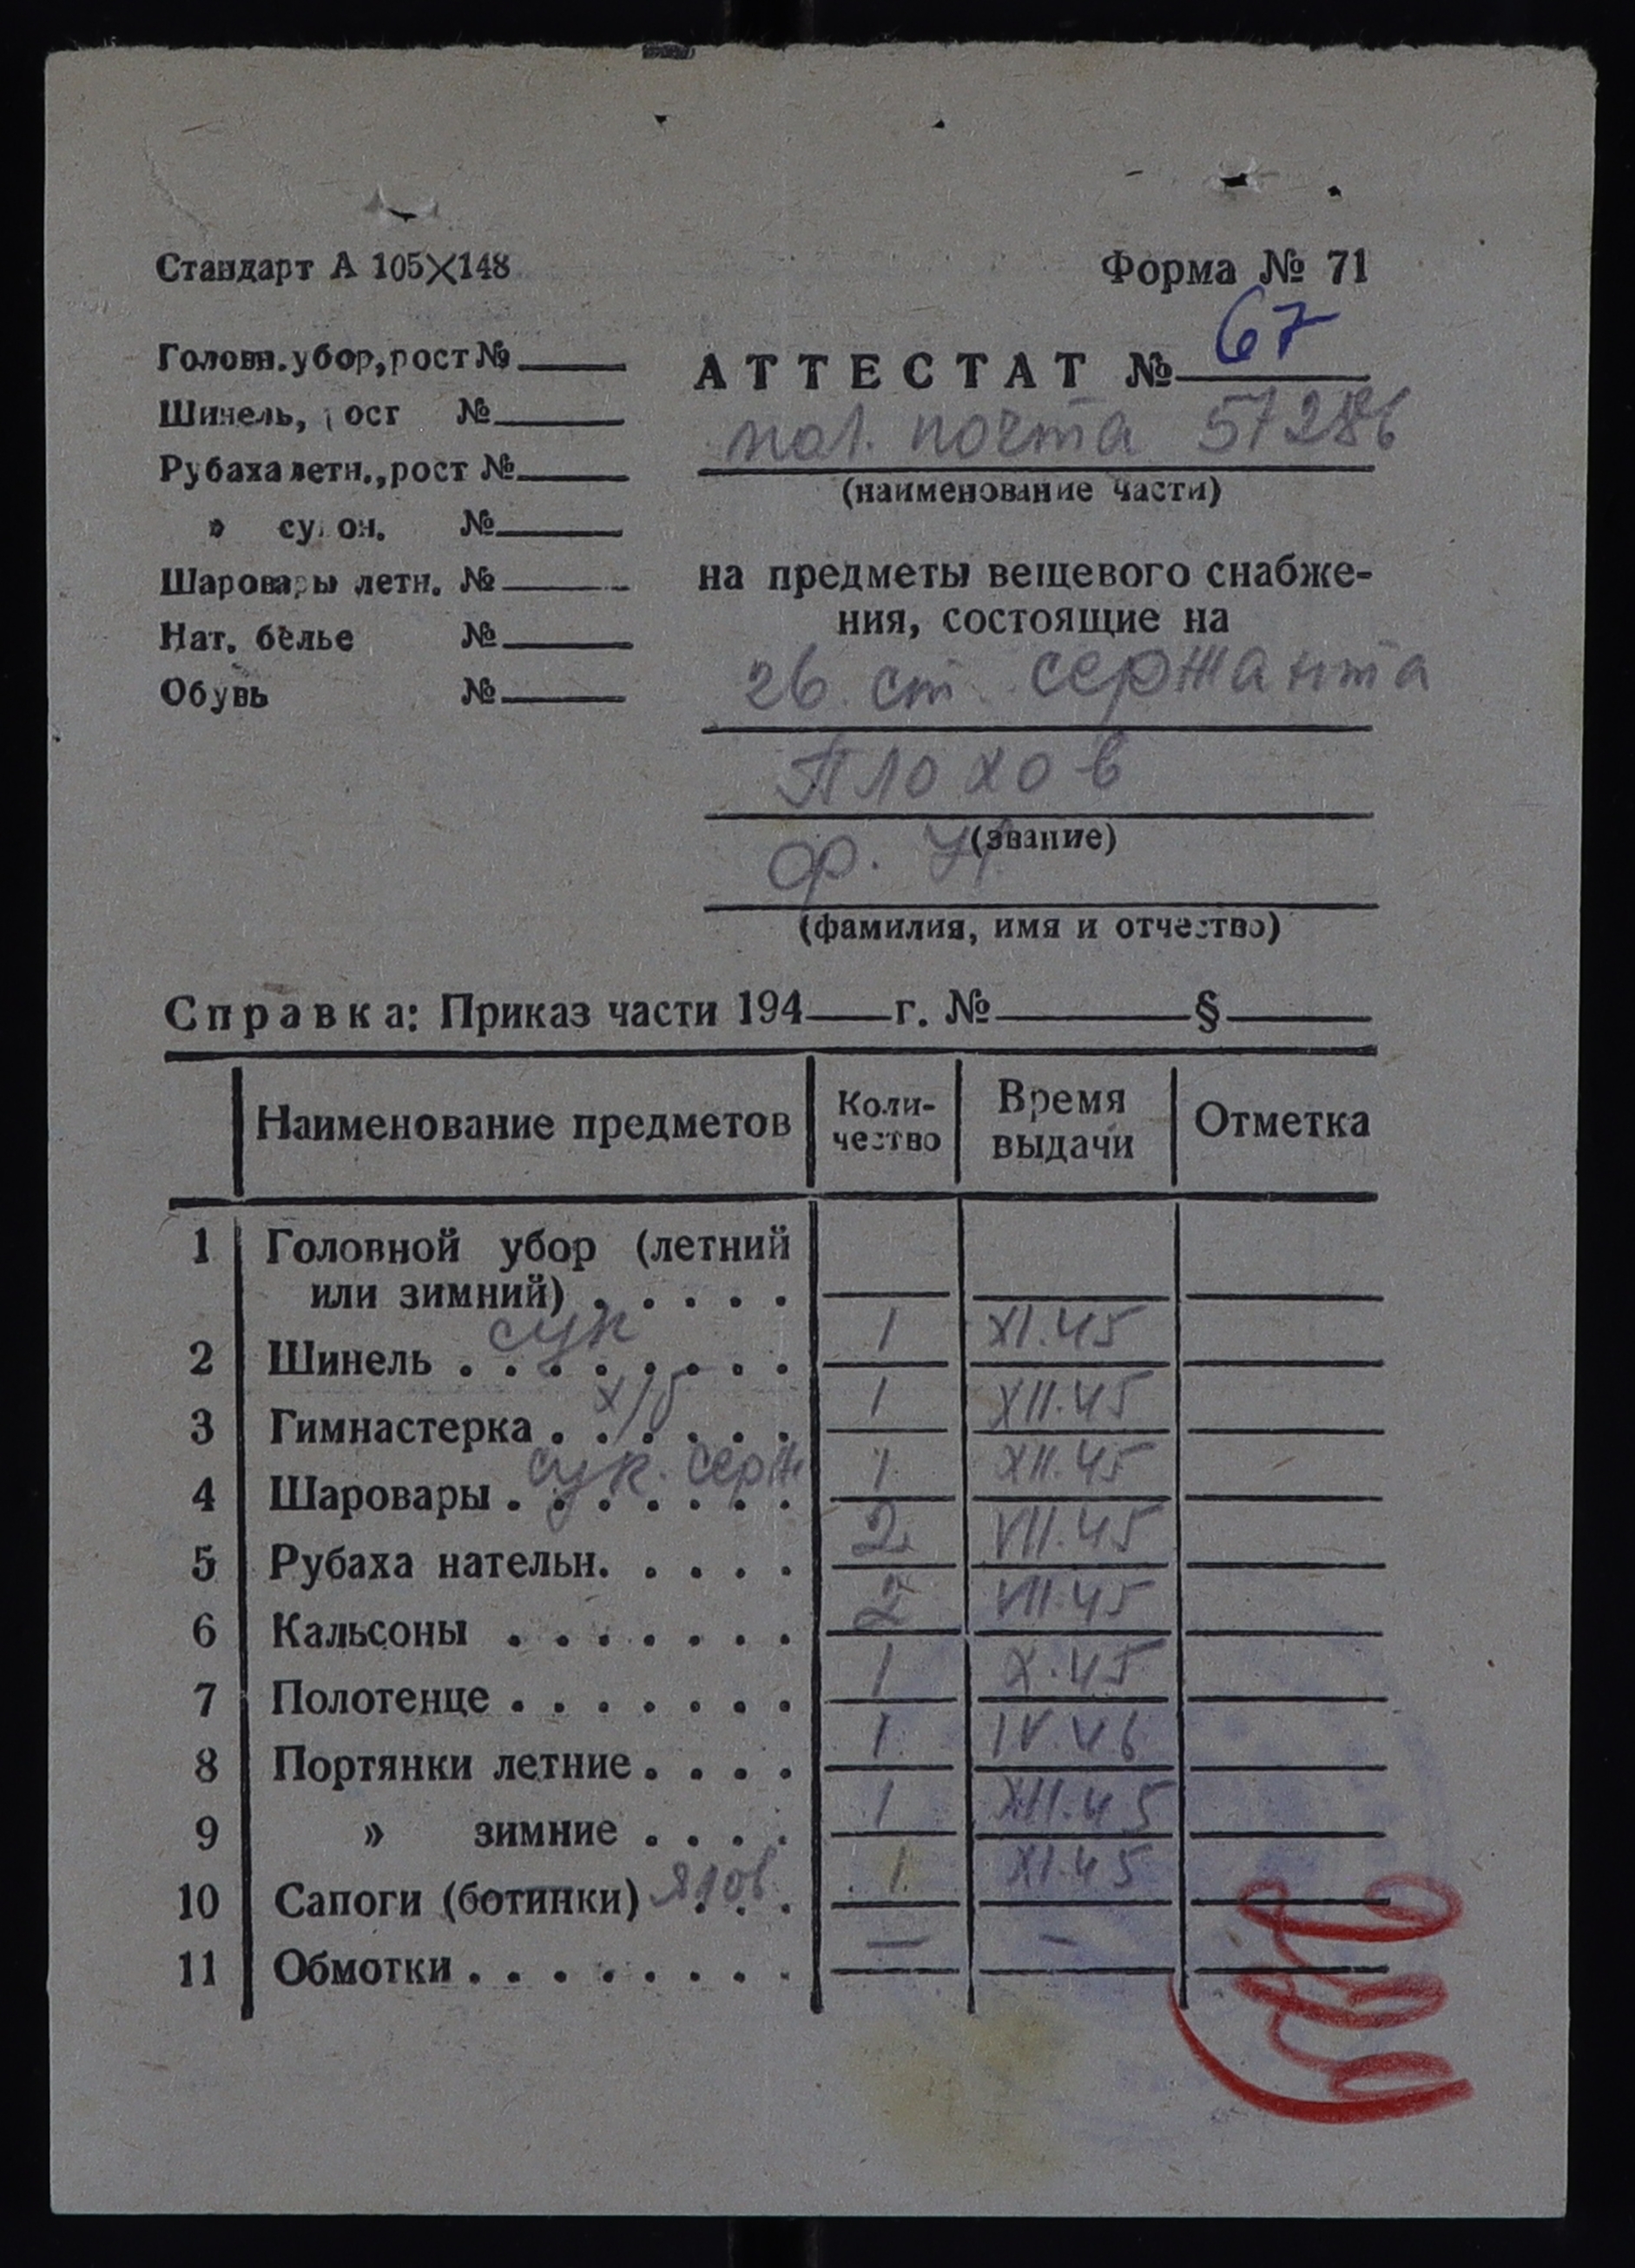 Стандарт А 105×148
Форма № 71
Головн. убор, рост №
Шинель, рост №
Рубаха летн., рост №
» сукон. №
Шаровары летн. №
Нат. белье №
Обувь №
АТТЕСТАТ № 67
пол. почта 57286
(наименование части)
на предметы вещевого снабже-
ния, состоящие на
гв. ст. сержанта
Плохов
(звание)
Ф. И.
(фамилия, имя и отчество)
Справка: Приказ части 194 г. № §
Наименование предметов Коли-чество Время выдачи Отметка
1 Головной убор (летний
или зимний) . . . . .
2 Шинель сук 1 XI.45
3 Гимнастерка х/б 1 XII.45
4 Шаровары сук. серж 1 XII.45
5 Рубаха нательн. 2 VII.45
6 Кальсоны 2 VII.45
7 Полотенце 1 X.45
8 Портянки летние 1 IV.46
9 » зимние 1 XII.45
10 Сапоги (ботинки) ялов 1 XI.45
11 Обмотки — —